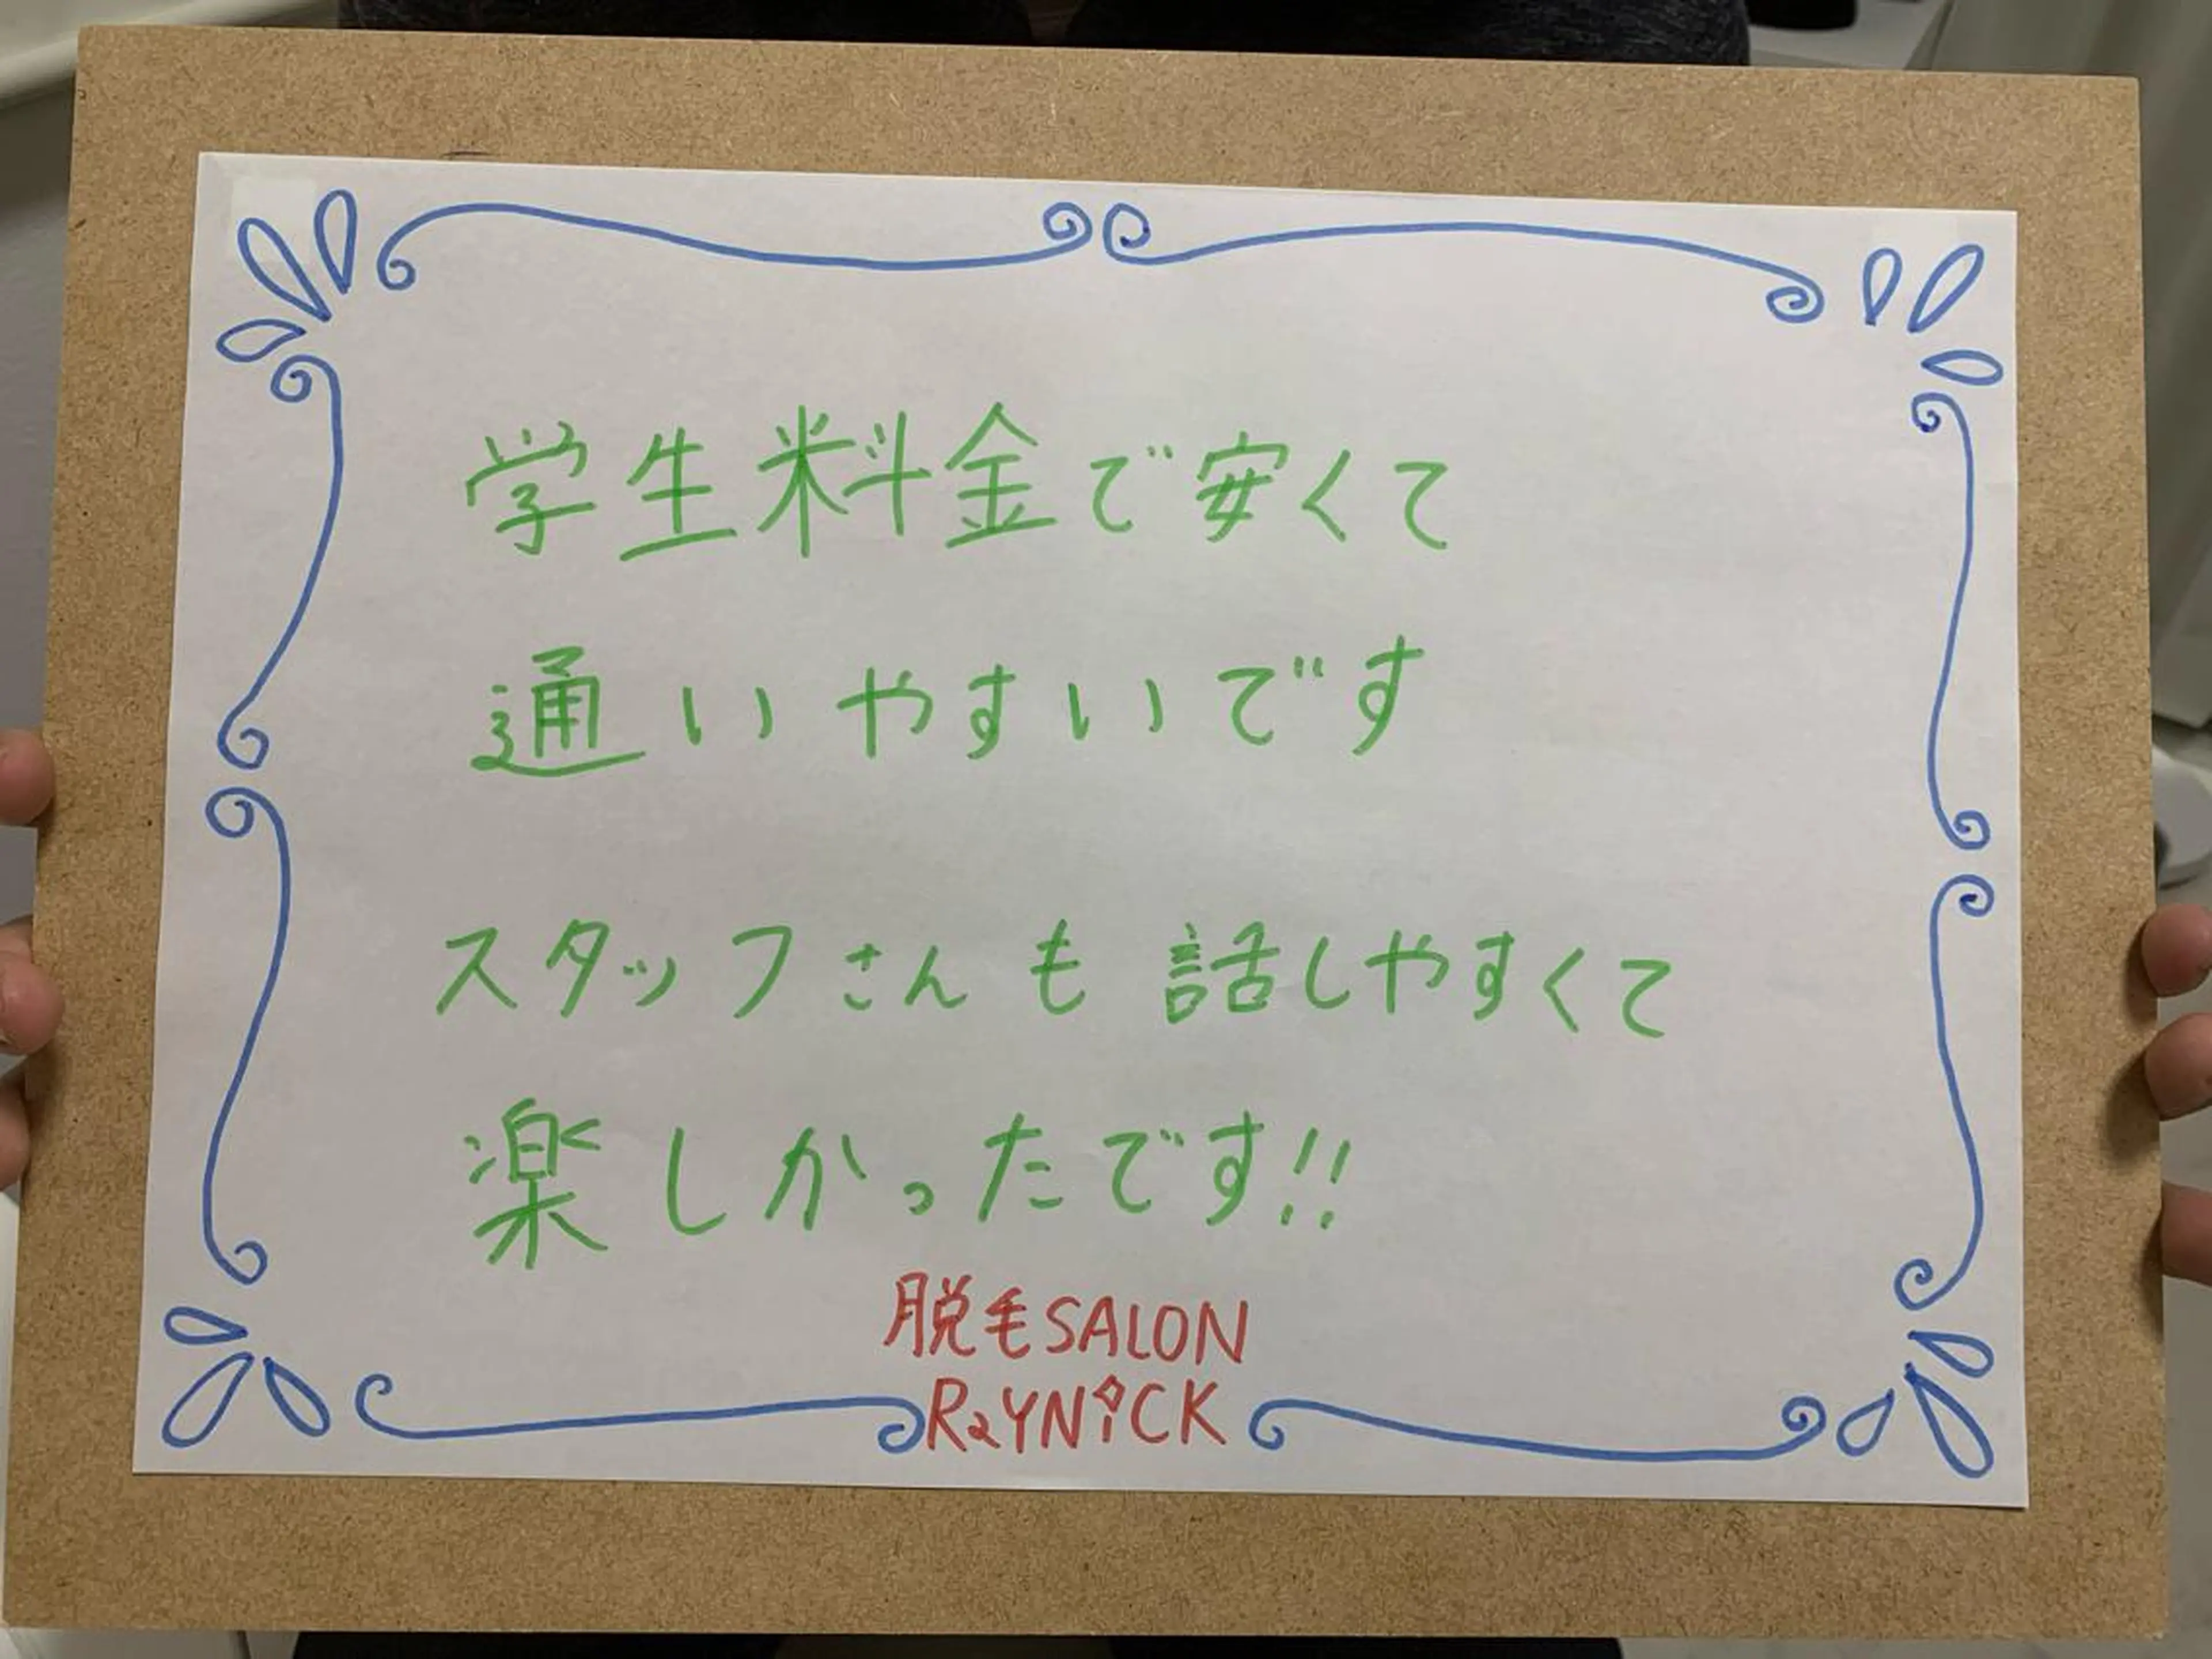 学生料金で安くて
通いやすいです
スタッフさんも話しやすくて
楽しかったです!!
脱毛SALON
RaYNiCK